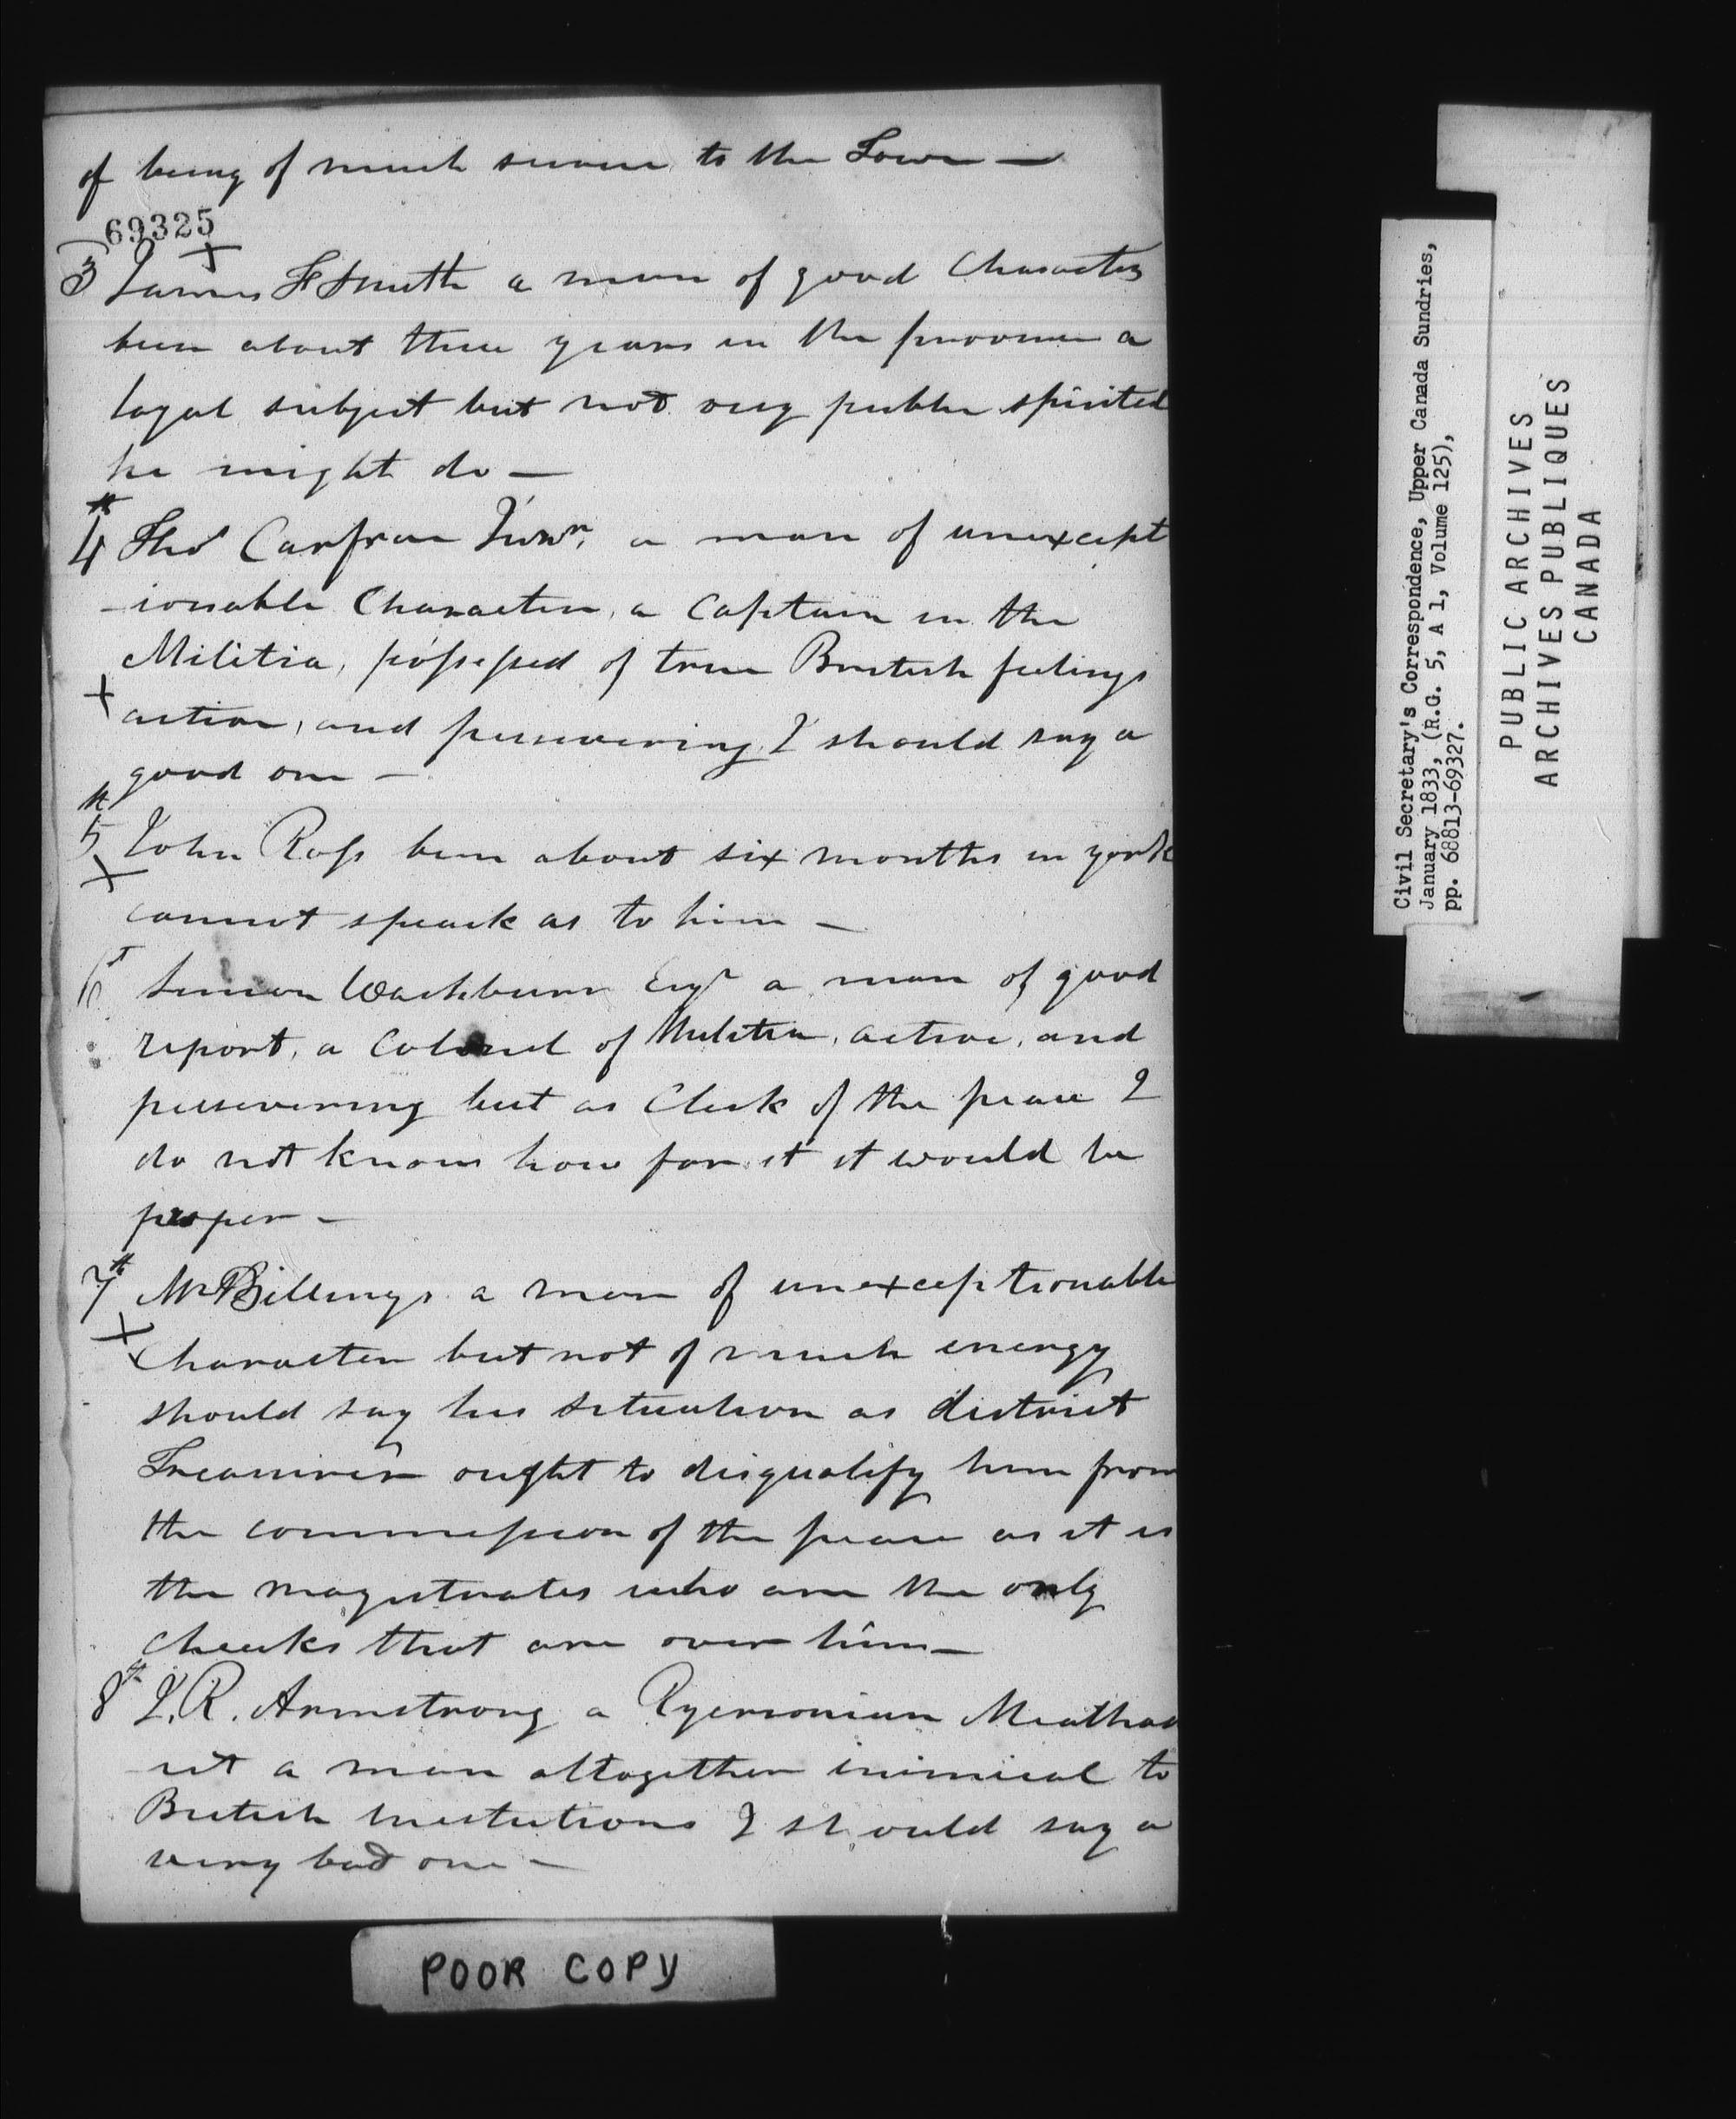 of being of much service to the Town —
69325
3 James F Smith a man of good Character
been about three years in the province a
loyal subject but not very public spirited
he might do —
4th Thos Carfrae Junr, a man of unexcept
-ionable Character, a Captain in the
Militia, possessed of true British feelings
active, and persevering, I should say a
good one —
5th John Ross been about six months in york
cannot speack as to him —
6 Simon Washburn Esqr a man of good
report, a Colonel of Militia, active, and
persevering but as Clerk of the peace I
do not know how far it it would be
proper —
7th Mr Billings a man of unexceptionable
Character but not of much energy
should say his situation as district
Treasurer ought to disqualify him from
the commission of the peace as it is
the magistrates who are the only
checks that are over him —
8th J. R. Armstrong a Ryersonian Meathod
-ist a man altogether inimical to
British Institutions I should say a
very bad one —
POOR COPY
Civil Secretary's Correspondence, Upper Canada Sundries,
January 1833, (R.G. 5, A 1, Volume 125),
pp. 68813-69327.
PUBLIC ARCHIVES
ARCHIVES PUBLIQUES
CANADA